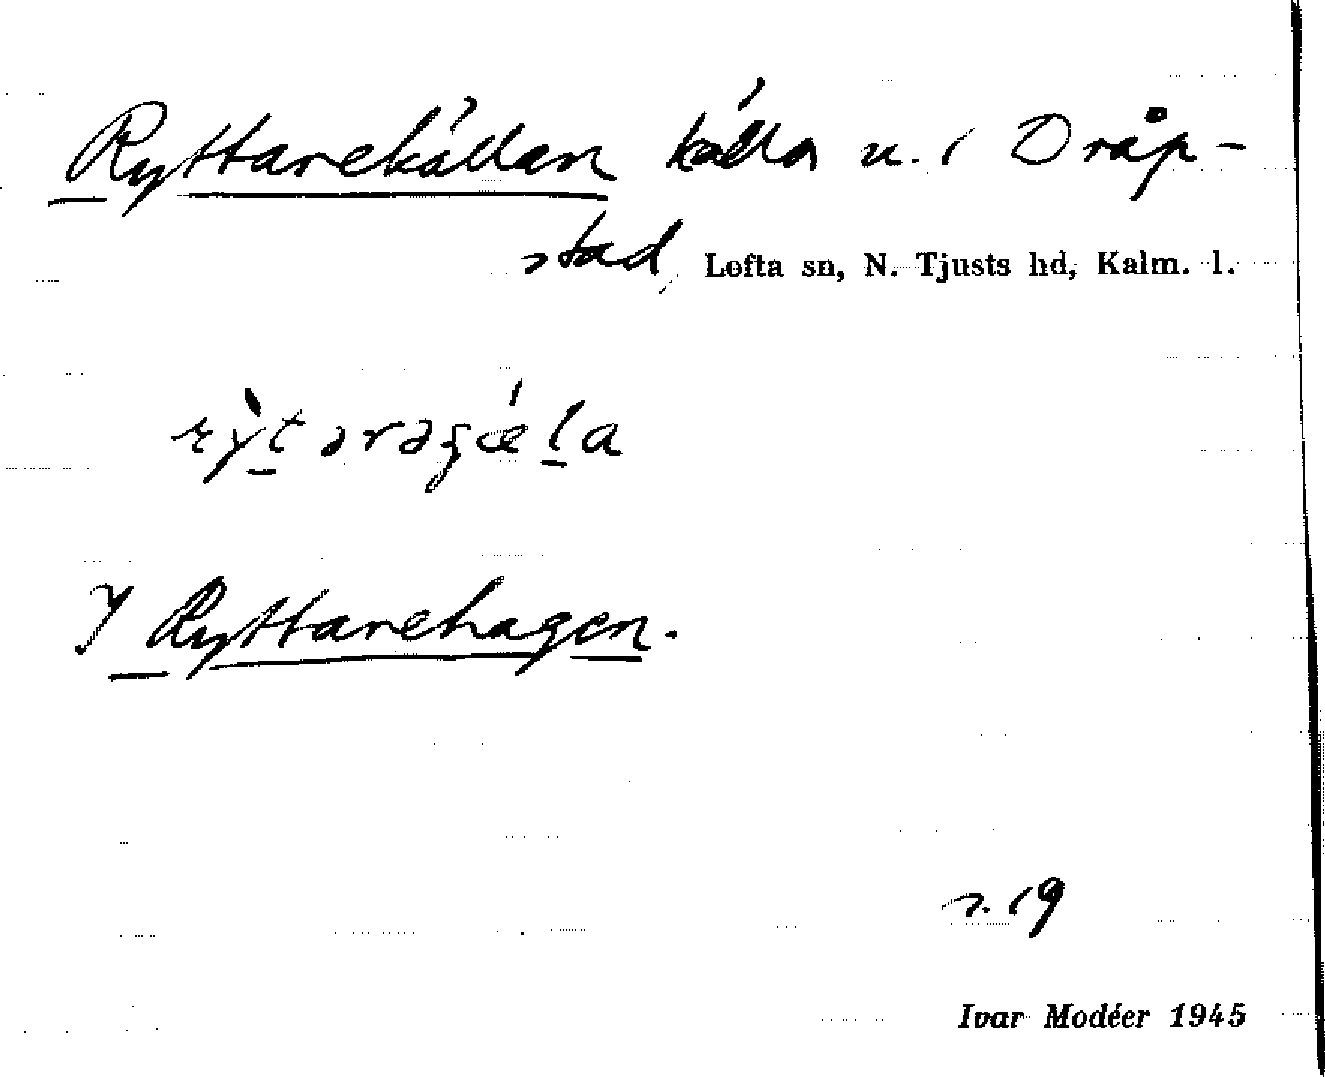 Ryttarekällan källa u. i Dråp-
stad, Lofta sn, N. Tjusts hd, Kalm. l.
rỳtaragǽla
I Ryttarehagen.
s. 19
Ivar Modéer 1945